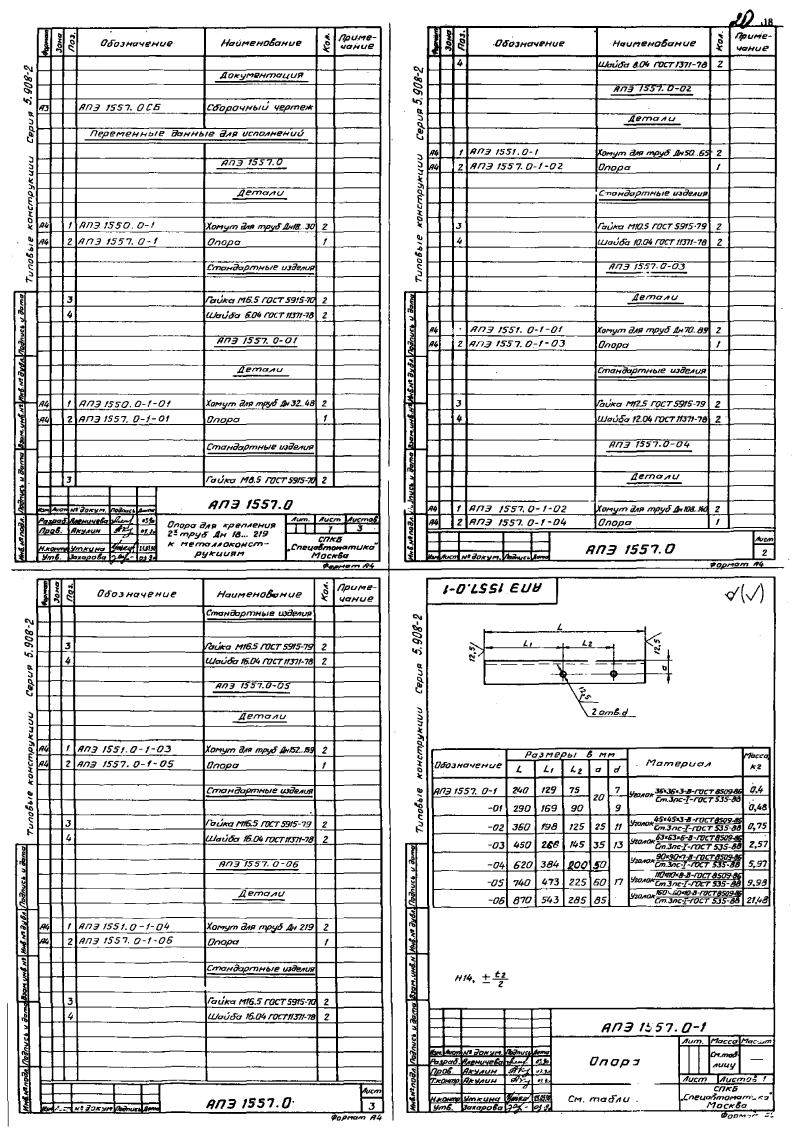 20 .18
Типовые конструкции Серия 5.908-2
Формат Зона Поз. Обозначение Наименование Кол. Примечание
Документация
А3 АПЭ 1557.0 СБ Сборочный чертеж
Переменные данные для исполнений
АПЭ 1557.0
Детали
А4 1 АПЭ 1550.0-1 Хомут для труб Дн18...30 2
А4 2 АПЭ 1557.0-1 Опора 1
Стандартные изделия
3 Гайка М6.5 ГОСТ 5915-70 2
4 Шайба 6.04 ГОСТ 11371-78 2
АПЭ 1557.0-01
Детали
А4 1 АПЭ 1550.0-1-01 Хомут для труб Дн32..48 2
А4 2 АПЭ 1557.0-1-01 Опора 1
Стандартные изделия
3 Гайка М8.5 ГОСТ 5915-70 2
АПЭ 1557.0
Изм. Лист № докум. Подпись Дата
Разраб. Аленичева
Пров. Акулин
Н.контр. Уткина
Утв. Захарова
Опора для крепления
2х труб Дн 18...219
к металлоконст-
рукциям
Лит. Лист Листов
1 3
СПКБ
„Спецавтоматика"
Москва
Формат А4
Инв.№ подл. Подпись и дата Взам.инв.№ Инв.№ дубл. Подпись и дата
Типовые конструкции Серия 5.908-2
Формат Зона Поз. Обозначение Наименование Кол. Примечание
4 Шайба 8.04 ГОСТ 1371-78 2
АПЭ 1557.0-02
Детали
А4 1 АПЭ 1551.0-1 Хомут для труб Дн50..65 2
А4 2 АПЭ 1557.0-1-02 Опора 1
Стандартные изделия
3 Гайка М10.5 ГОСТ 5915-79 2
4 Шайба 10.04 ГОСТ 11371-78 2
АПЭ 1557.0-03
Детали
А4 АПЭ 1551.0-1-01 Хомут для труб Дн70..89 2
А4 2 АПЭ 1557.0-1-03 Опора 1
Стандартные изделия
3 Гайка М12.5 ГОСТ 5915-79 2
4 Шайба 12.04 ГОСТ 11371-78 2
АПЭ 1557.0-04
Детали
А4 1 АПЭ 1557.0-1-02 Хомут для труб Дн108..140 2
А4 2 АПЭ 1557.0-1-04 Опора 1
Изм. Лист № докум. Подпись Дата
АПЭ 1557.0
Лист
2
Формат А4
Инв.№ подл. Подпись и дата Взам.инв.№ Инв.№ дубл. Подпись и дата
Типовые конструкции Серия 5.908-2
Формат Зона Поз. Обозначение Наименование Кол. Примечание
Стандартные изделия
3 Гайка М16.5 ГОСТ 5915-79 2
4 Шайба 16.04 ГОСТ 11371-78 2
АПЭ 1557.0-05
Детали
А4 1 АПЭ 1551.0-1-03 Хомут для труб Дн152..159 2
А4 2 АПЭ 1557.0-1-05 Опора 1
Стандартные изделия
3 Гайка М16.5 ГОСТ 5915-79 2
4 Шайба 16.04 ГОСТ 11371-78 2
АПЭ 1557.0-06
Детали
А4 1 АПЭ 1551.0-1-04 Хомут для труб Дн 219 2
А4 2 АПЭ 1557.0-1-06 Опора 1
Стандартные изделия
3 Гайка М16.5 ГОСТ 5915-70 2
4 Шайба 16.04 ГОСТ 11371-78 2
№ докум. Подпись Дата
АПЭ 1557.0
Лист
3
Формат А4
Инв.№ подл. Подпись и дата Взам.инв.№ Инв.№ дубл. Подпись и дата
Типовые конструкции Серия 5.908-2
АПЭ 1557.0-1
√(√)
L
L1 L2
12,5 12,5
а
12,5
2 отв. d
Обозначение Размеры в мм Материал Масса, кг
L L1 L2 а d
АПЭ 1557.0-1 240 129 75 20 7 Уголок 36×36×3-В-ГОСТ 8509-86 Ст.3пс-I-ГОСТ 535-88 0,4
-01 290 169 90 9 0,48
-02 360 198 125 25 11 Уголок 45×45×3-В-ГОСТ 8509-86 Ст.3пс-I-ГОСТ 535-88 0,75
-03 450 266 145 35 13 Уголок 63×63×6-В-ГОСТ 8509-86 Ст.3пс-I-ГОСТ 535-88 2,57
-04 620 384 200 50 Уголок 90×90×7-В-ГОСТ 8509-86 Ст.3пс-I-ГОСТ 535-88 5,97
-05 740 473 225 60 17 Уголок 110×110×8-В-ГОСТ 8509-86 Ст.3пс-I-ГОСТ 535-88 9,99
-06 870 543 285 85 Уголок 160×160×10-В-ГОСТ 8509-86 Ст.3пс-I-ГОСТ 535-88 21,48
Н14, ± t2/2
АПЭ 1557.0-1
Изм. Лист № докум. Подпись Дата
Разраб. Аленичева
Пров. Акулин
Т.контр. Акулин
Н.контр. Уткина
Утв. Захарова
Опора
См. таблицу
Лит. Масса Масшт.
См.таб-
лицу —
Лист Листов 1
СПКБ
„Спецавтоматика"
Москва
Формат
Инв.№ подл. Подпись и дата Взам.инв.№ Инв.№ дубл. Подпись и дата